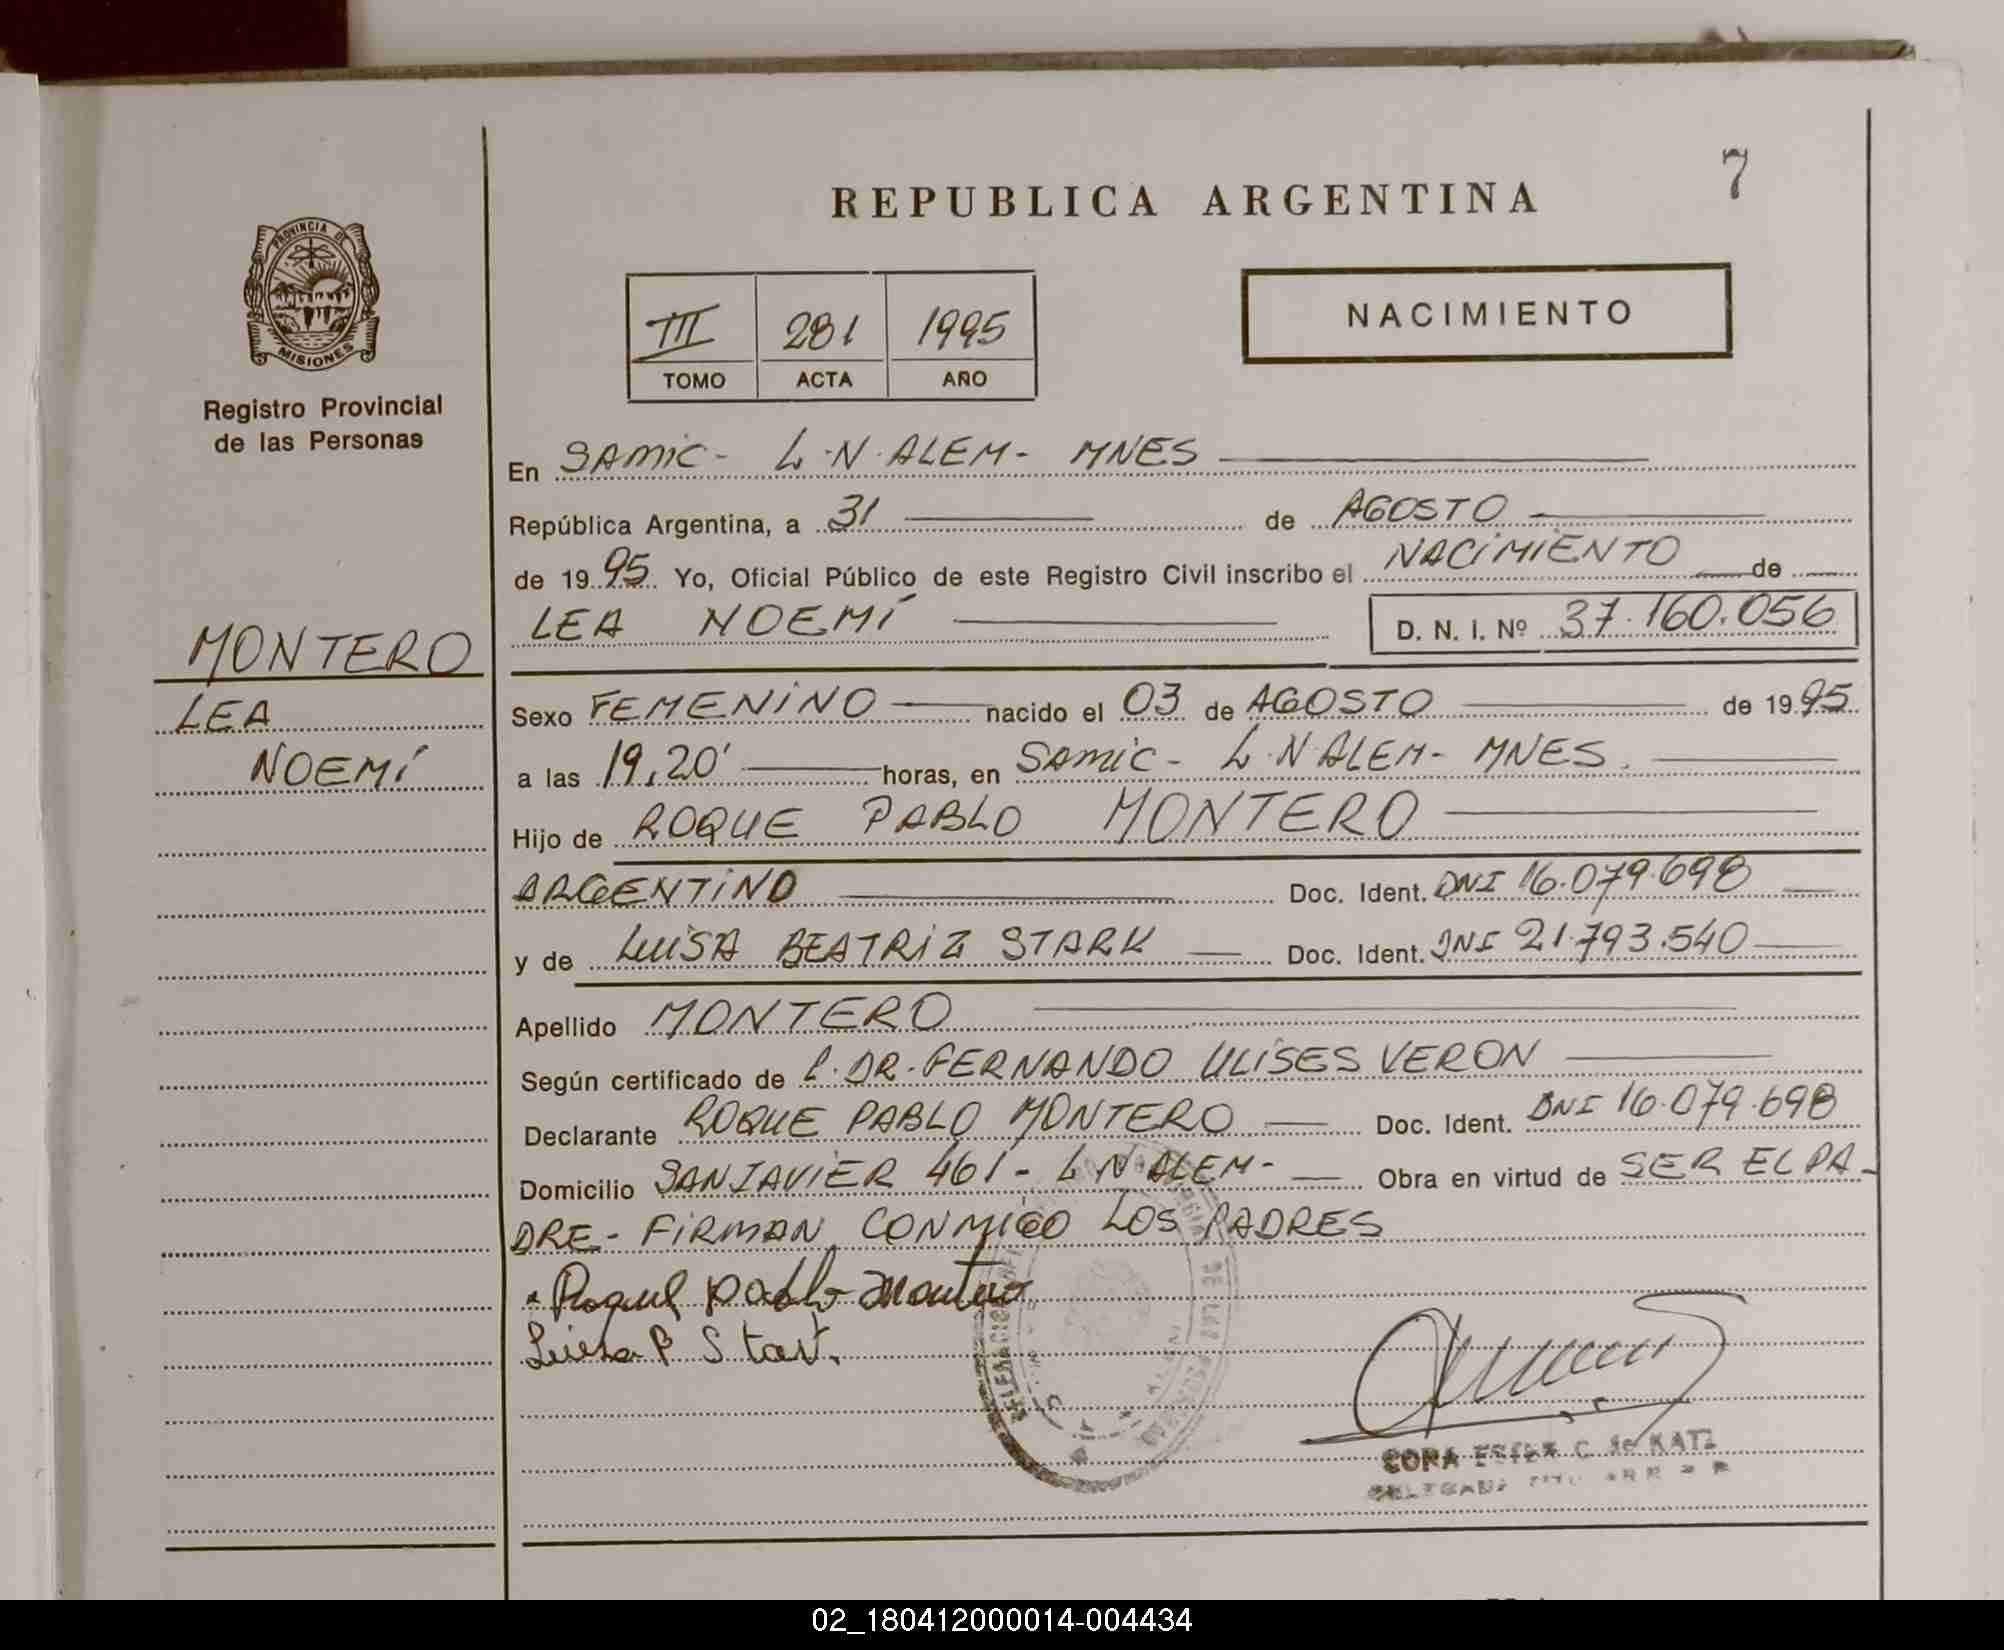 7
REPUBLICA ARGENTINA
PROVINCIA DE
MISIONES
Registro Provincial
de las Personas
III 281 1995
TOMO ACTA AÑO
NACIMIENTO
En SAMIC - L.N. ALEM - MNES
República Argentina, a 31 de AGOSTO
de 1995 Yo, Oficial Público de este Registro Civil inscribo el NACIMIENTO de
LEA NOEMÍ D. N. I. Nº 37.160.056
MONTERO
LEA
NOEMÍ
Sexo FEMENINO nacido el 03 de AGOSTO de 1995
a las 19,20' horas, en SAMIC - L.N ALEM - MNES.
Hijo de ROQUE PABLO MONTERO
ARGENTINO Doc. Ident. DNI 16.079.698
y de LUISA BEATRIZ STARK Doc. Ident. DNI 21.793.540
Apellido MONTERO
Según certificado de DR. FERNANDO ULISES VERON
Declarante ROQUE PABLO MONTERO Doc. Ident. DNI 16.079.698
Domicilio SAN JAVIER 461 - L N ALEM - Obra en virtud de SER EL PA-
DRE - FIRMAN CONMIGO LOS PADRES
Roque Pablo Montero
Luisa B Stark
DE LAS PERSONAS
ESTER C. de KATZ
02_180412000014-004434